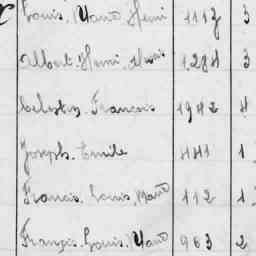 Louis, Marie Henri 1113 3
Albert, Henri, Louis 1284 3
Celestin, Francois 1942 4
Joseph, Emile 441 1
Francois, Louis, Marie 112 1
François, Louis, Marie 963 2